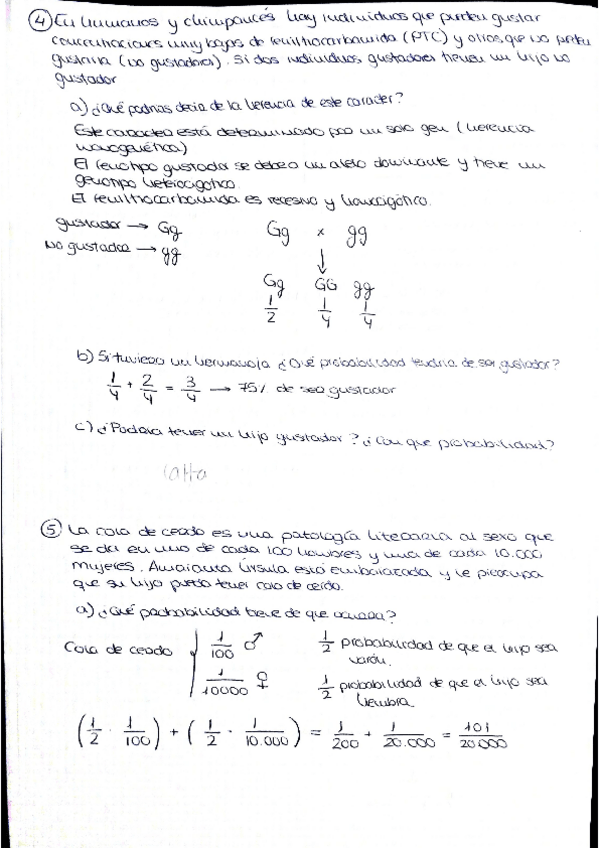 ④ En humanos y chimpancés hay individuos que pueden gustar
concentraciones muy bajas de feniltiocarbamida (PTC) y otros que no pueden
gustarla (no gustadores). Si dos individuos gustadores tienen un hijo no
gustador
a) ¿Qué podrías decir de la herencia de este caracter?
Este caracter está determinado por un solo gen (herencia
monogenética)
El fenotipo gustador se debe a un alelo dominante y tiene un
genotipo heterocigótico.
El feniltiocarbamida es recesivo y homocigótico.
gustador → Gg
No gustador → gg
Gg x gg
↓
Gg GG gg
1/2 1/4 1/4
b) Si tuviera un hermano/a ¿Qué probabilidad tendría de ser gustador?
1/4 + 2/4 = 3/4 → 75% de ser gustador
c) ¿Podría tener un hijo gustador? ¿Con que probabilidad?
falta
⑤ La cola de cerdo es una patología literaria al sexo que
se da en uno de cada 100 hombres y una de cada 10.000
mujeres. Amaranta Úrsula está embarazada y le preocupa
que su hijo pueda tener cola de cerdo.
a) ¿Qué probabilidad tiene de que ocurra?
Cola de cerdo 1/100 ♂
1/10000 ♀
1/2 probabilidad de que el hijo sea
varón.
1/2 probabilidad de que el hijo sea
hembra.
(1/2 · 1/100) + (1/2 · 1/10.000) = 1/200 + 1/20.000 = 101/20.000